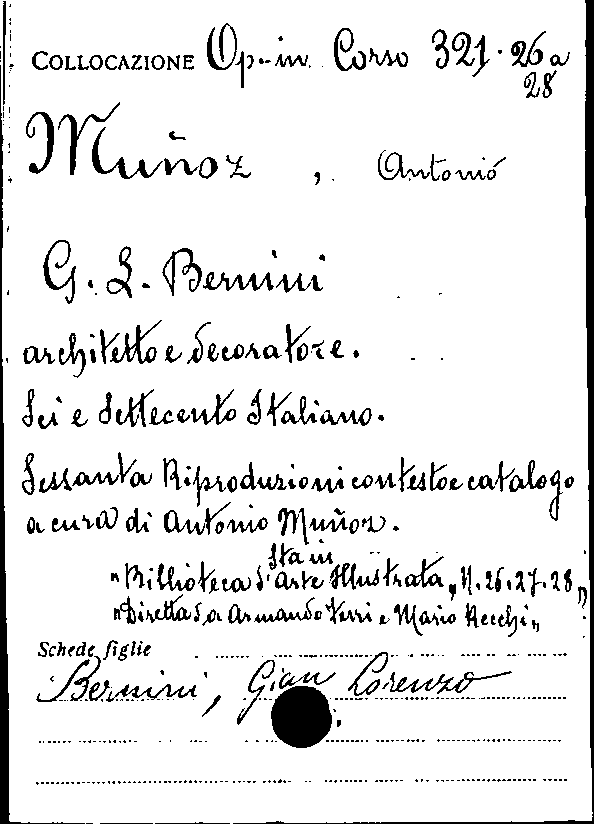 COLLOCAZIONE Op-in Corso 321.26a
28
Muñoz, Antonio
G. L. Bernini
architetto e decoratore.
Sei e Settecento Italiano.
Sessanta Riproduzioni con testo e catalogo
a cura di Antonio Muñoz.
Sta in
"Biblioteca d'Arte Illustrata", N. 26.27.28"
"Diretta da Armando Ferri e Mario Recchi"
Schede figlie
Bernini, Gian Lorenzo